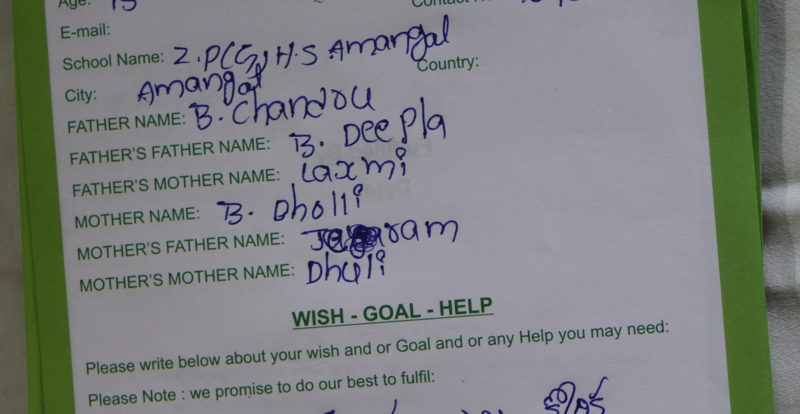 Age: 15
E-mail:
School Name: Z.P(G)H.S Amangal
City: Amangal Country:
FATHER NAME: B. Chandou
FATHER'S FATHER NAME: B. Deepla
FATHER'S MOTHER NAME: Laxmi
MOTHER NAME: B. Dholli
MOTHER'S FATHER NAME:
MOTHER'S MOTHER NAME: Dhuli
WISH - GOAL - HELP
Please write below about your wish and or Goal and or any Help you may need:
Please Note : we promise to do our best to fulfil: